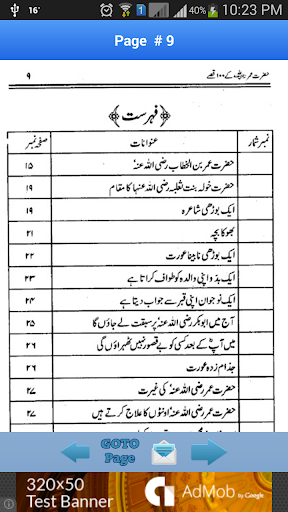 16°
10:23 PM
Page # 9
حضرت عمر رضی اللہ عنہ کے ۱۰۰ قصے
۹
فہرست
نمبر شمار عنوانات صفحہ نمبر
حضرت عمر بن الخطاب رضی اللہ عنہٗ ۱۵
حضرت خولہ بنت ثعلبہ رضی اللہ عنہا کا مقام ۱۹
ایک بوڑھی شاعرہ ۱۹
بھوکا بچہ ۲۱
ایک بوڑھی نابینا عورت ۲۲
ایک بدو اپنی والدہ کو طواف کراتا ہے ۲۳
ایک نوجوان اپنی قبر سے جواب دیتا ہے ۲۴
آج میں ابوبکر رضی اللہ عنہٗ پر سبقت لے جاؤں گا ۲۵
میں آپ کے بعد کسی کو بے قصور نہیں ٹھہراؤں گی ۲۶
جذام زدہ عورت ۲۶
حضرت عمر رضی اللہ عنہٗ کی غیرت ۲۷
حضرت عمر رضی اللہ عنہٗ اونٹوں کا علاج کرتے ہیں ۲۷
GOTO
Page
320×50
Test Banner
AdMob by Google